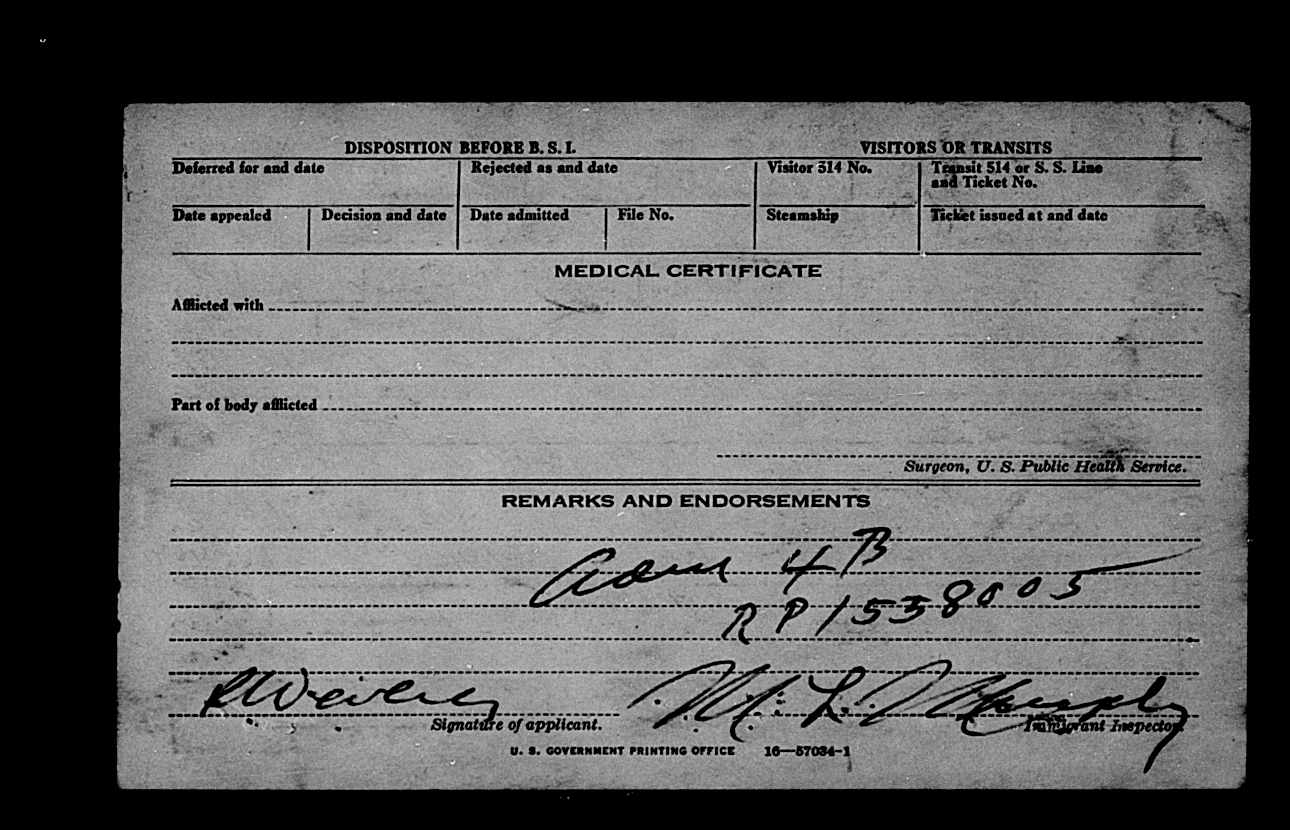 DISPOSITION BEFORE B. S. I. VISITORS OR TRANSITS
Deferred for and date Rejected as and date Visitor 514 No. Transit 514 or S. S. Line and Ticket No.
Date appealed Decision and date Date admitted File No. Steamship Ticket issued at and date
MEDICAL CERTIFICATE
Afflicted with
Part of body afflicted
Surgeon, U. S. Public Health Service.
REMARKS AND ENDORSEMENTS
Adm 4 B
RP1558005
M. L. Murphy
Signature of applicant. Immigrant Inspector.
U. S. GOVERNMENT PRINTING OFFICE 16—57034-1